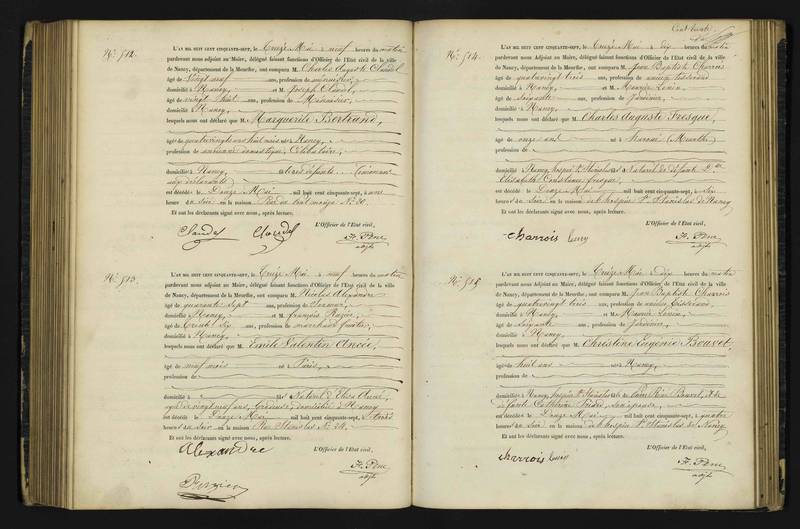 No. 512.
L'AN MIL HUIT CENT CINQUANTE-SEPT, le Treize Mai à neuf heures du matin
pardevant nous adjoint au Maire, délégué faisant fonctions d'Officier de l'Etat civil de la ville
de Nancy, département de la Meurthe, ont comparu M. Charles Auguste Claudel
âgé de Vingt neuf ans, profession de menuisier,
domicilié à Nancy, et M. Joseph Claudel,
âgé de vingt huit ans, profession de Menuisier,
domicilié à Nancy,
lesquels nous ont déclaré que M. Marguerite Bertrand,
âgé de quatrevingt ans huit mois né à Nancy,
profession de ancienne domestique, Célibataire,
domicilié à Nancy,
est décédé le Douze Mai mil huit cent cinquante-sept, à onze
heures du Soir en la maison No. 30.
Et ont les déclarants signé avec nous, après lecture.
L'Officier de l'Etat civil,
Claudel Claudel
adjt
No. 513.
L'AN MIL HUIT CENT CINQUANTE-SEPT, le Treize Mai à neuf heures du matin
pardevant nous adjoint au Maire, délégué faisant fonctions d'Officier de l'Etat civil de la ville
de Nancy, département de la Meurthe, ont comparu M. Nicolas Alexandre
âgé de quarante sept ans, profession de
domicilié à Nancy, et M. François
âgé de Trente Six ans, profession de marchand fruitier,
domicilié à Nancy,
lesquels nous ont déclaré que M. Emile Valentin Ancée,
âgé de neuf mois né à Paris,
profession de
domicilié à fils Naturel d'Elisa Ancée,
agée de vingt neuf ans, domiciliée à Nancy
est décédé le Douze Mai mil huit cent cinquante-sept, à trois
heures du Soir en la maison Rue Stanislas No. 24.
Et ont les déclarants signé avec nous, après lecture.
L'Officier de l'Etat civil,
Alexandre
adjt
Cent trente
No. 514.
L'AN MIL HUIT CENT CINQUANTE-SEPT, le Treize Mai à dix heures du matin
pardevant nous Adjoint au Maire, délégué faisant fonctions d'Officier de l'Etat civil de la ville
de Nancy, département de la Meurthe, ont comparu M. Jean Baptiste Charrois
âgé de quatrevingt trois ans, profession de ancien tisserand
domicilié à Nancy, et M.
âgé de Soixante ans, profession de Jardinier,
domicilié à Nancy,
lesquels nous ont déclaré que M. Charles Auguste Fresque,
âgé de onze ans né à (Meurthe)
profession de
domicilié à Nancy, hospice St. Stanislas fils Naturel de défunte
Elisabeth Constance
est décédé le Douze Mai mil huit cent cinquante-sept, à Six
heures du Soir en la maison de l'hospice St. Stanislas de Nancy
Et ont les déclarants signé avec nous, après lecture.
L'Officier de l'Etat civil,
Charrois
adjt
No. 515
L'AN MIL HUIT CENT CINQUANTE-SEPT, le Treize Mai à dix heures du matin
pardevant nous Adjoint au Maire, délégué faisant fonctions d'Officier de l'Etat civil de la ville
de Nancy, département de la Meurthe, ont comparu M. Jean Baptiste Charrois
âgé de quatrevingt trois ans, profession de ancien tisserand,
domicilié à Nancy, et M.
âgé de Soixante ans, profession de Jardinier,
domicilié à Nancy,
lesquels nous ont déclaré que M. Christine Eugénie Bouvet,
âgé de huit ans né à Nancy,
profession de
domicilié à Nancy, hospice St. Stanislas fils de René Bouvet,
Catherine son épouse,
est décédé le Douze Mai mil huit cent cinquante-sept, à quatre
heures du Soir en la maison de l'hospice St. Stanislas de Nancy
Et ont les déclarants signé avec nous, après lecture.
L'Officier de l'Etat civil,
Charrois
adjt